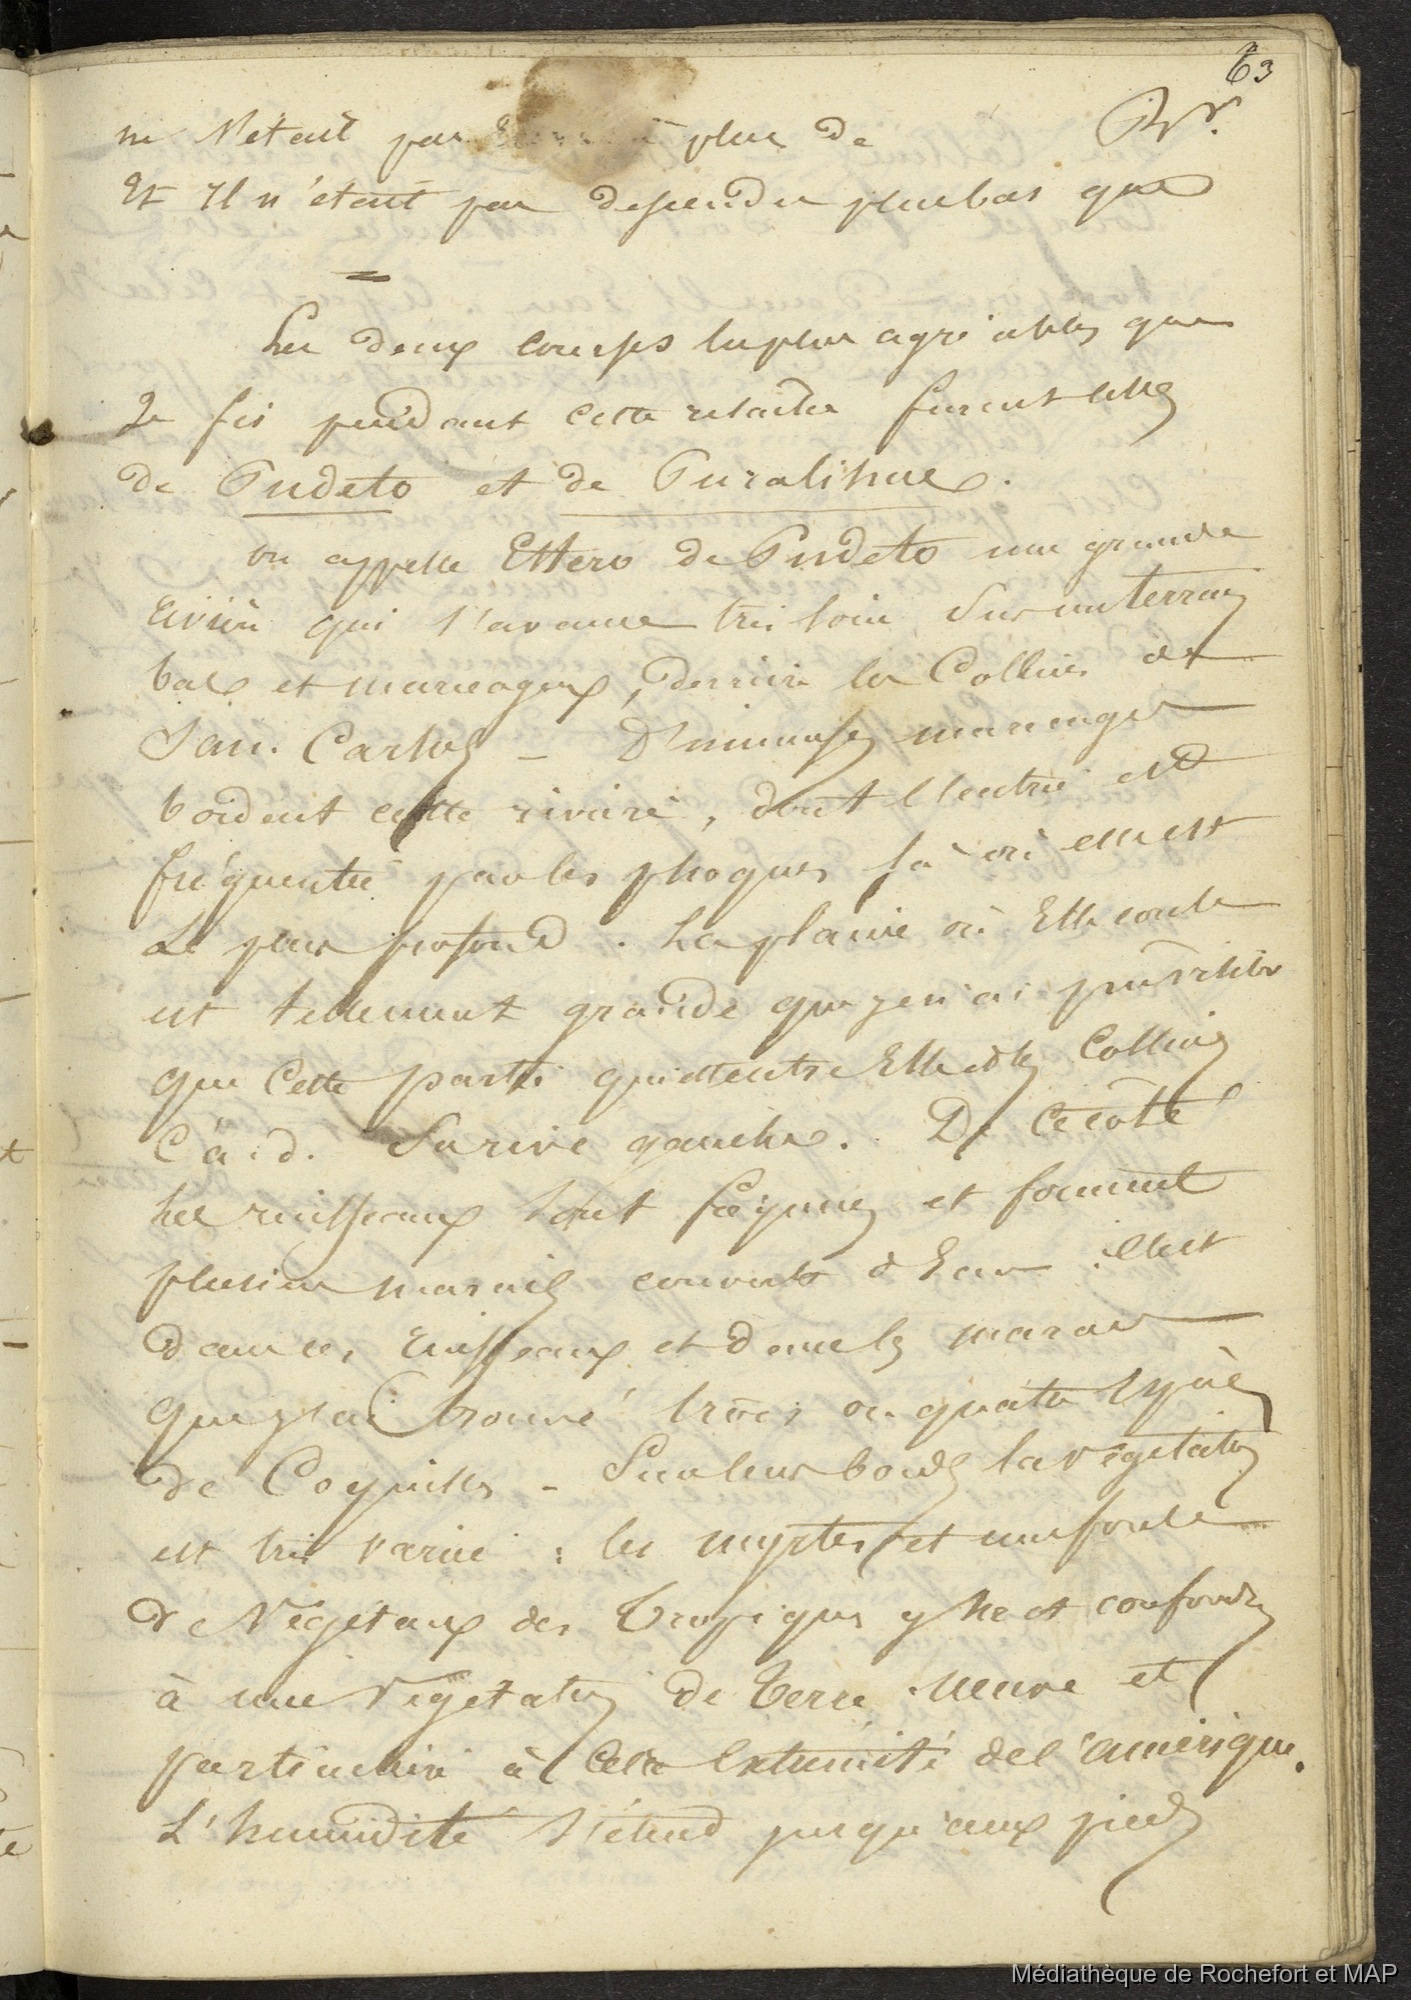 63
ne s'était pas plus de
Et Il n'était pas descendu plus bas que
=
Les deux courses les plus agréables que
Je fis pendant cette relache furent celles
de Pudeto et de Puralihue.
on appelle Estero de Pudeto une grande
rivière qui s'avance très loin Sur un terrain
bas et marécageux, derrière les Collines de
San. Carlos - D'immenses marécages
bordent cette rivière, dont l'entrée est
fréquentée par les phoques là où elle est
Le plus profond. La plaine où Elle coule
est tellement grande que je n'ai pu visiter
que Cette partie qui est entre Elle et les Collines
C.à.d. Sa rive gauche. De Ce côté
Les ruisseaux sont fréquens et forment
plusieurs marais couverts d'Eau. C'est
dans ces ruisseaux et dans les marais
que j'ai trouvé trois ou quatre espèces
de Coquilles - Sur leurs bords la végétation
est très variée : les myrtes et une foule
de Végétaux des tropiques y sont confondus
à une végétation de terre neuve et
particulière à Cette Extrémité de l'amérique.
L'humidité s'étend jusqu'aux pieds
Médiathèque de Rochefort et MAP